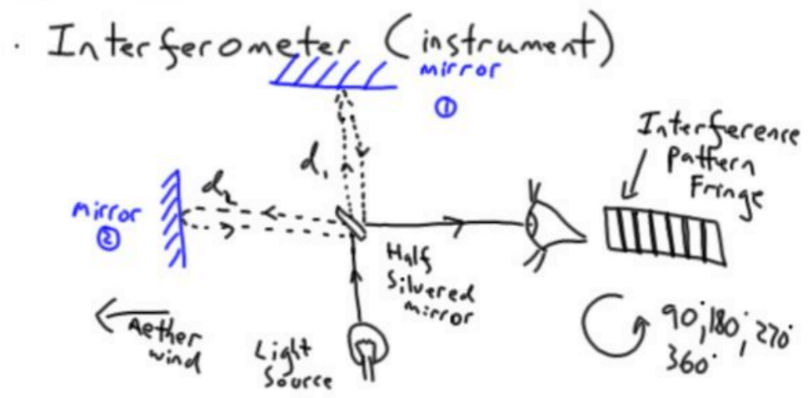 • Interferometer (instrument)
mirror
①
d₁
d₂
mirror
②
Interference
Pattern
Fringe
Half
Silvered
mirror
Aether
wind
Light
Source
90°, 180°, 270°
360°